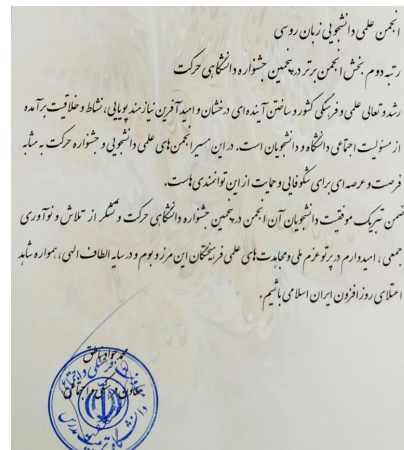 انجمن علمی دانشجویی زبان روسی
رتبه دوم بخش انجمن برتر در پنجمین جشنواره دانشگاهی حرکت
رشد و تعالی علمی و فرهنگی کشور و ساختن آینده‌ای درخشان و امیدآفرین نیازمند پویایی، نشاط و خلاقیت برآمده
از مسئولیت اجتماعی دانشگاه و دانشجویان است. در این مسیر انجمن‌های علمی دانشجویی و جشنواره حرکت به مثابه
فرصت و عرصه‌ای برای شکوفایی و حمایت از این توانمندی‌هاست.
ضمن تبریک موفقیت دانشجویان آن انجمن در پنجمین جشنواره دانشگاهی حرکت و تشکر از تلاش و نوآوری
جمعی، امیدوارم در پرتو عزم ملی و مجاهدت‌های علمی فرهیختگان این مرز و بوم و در سایه الطاف الهی، همواره شاهد
اعتلای روزافزون ایران اسلامی باشیم.
معاون فرهنگی و اجتماعی
دانشگاه تربیت مدرس